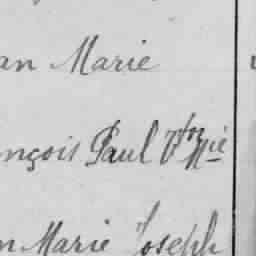 an Marie
nçois Paul Vtor Mie
n Marie Joseph